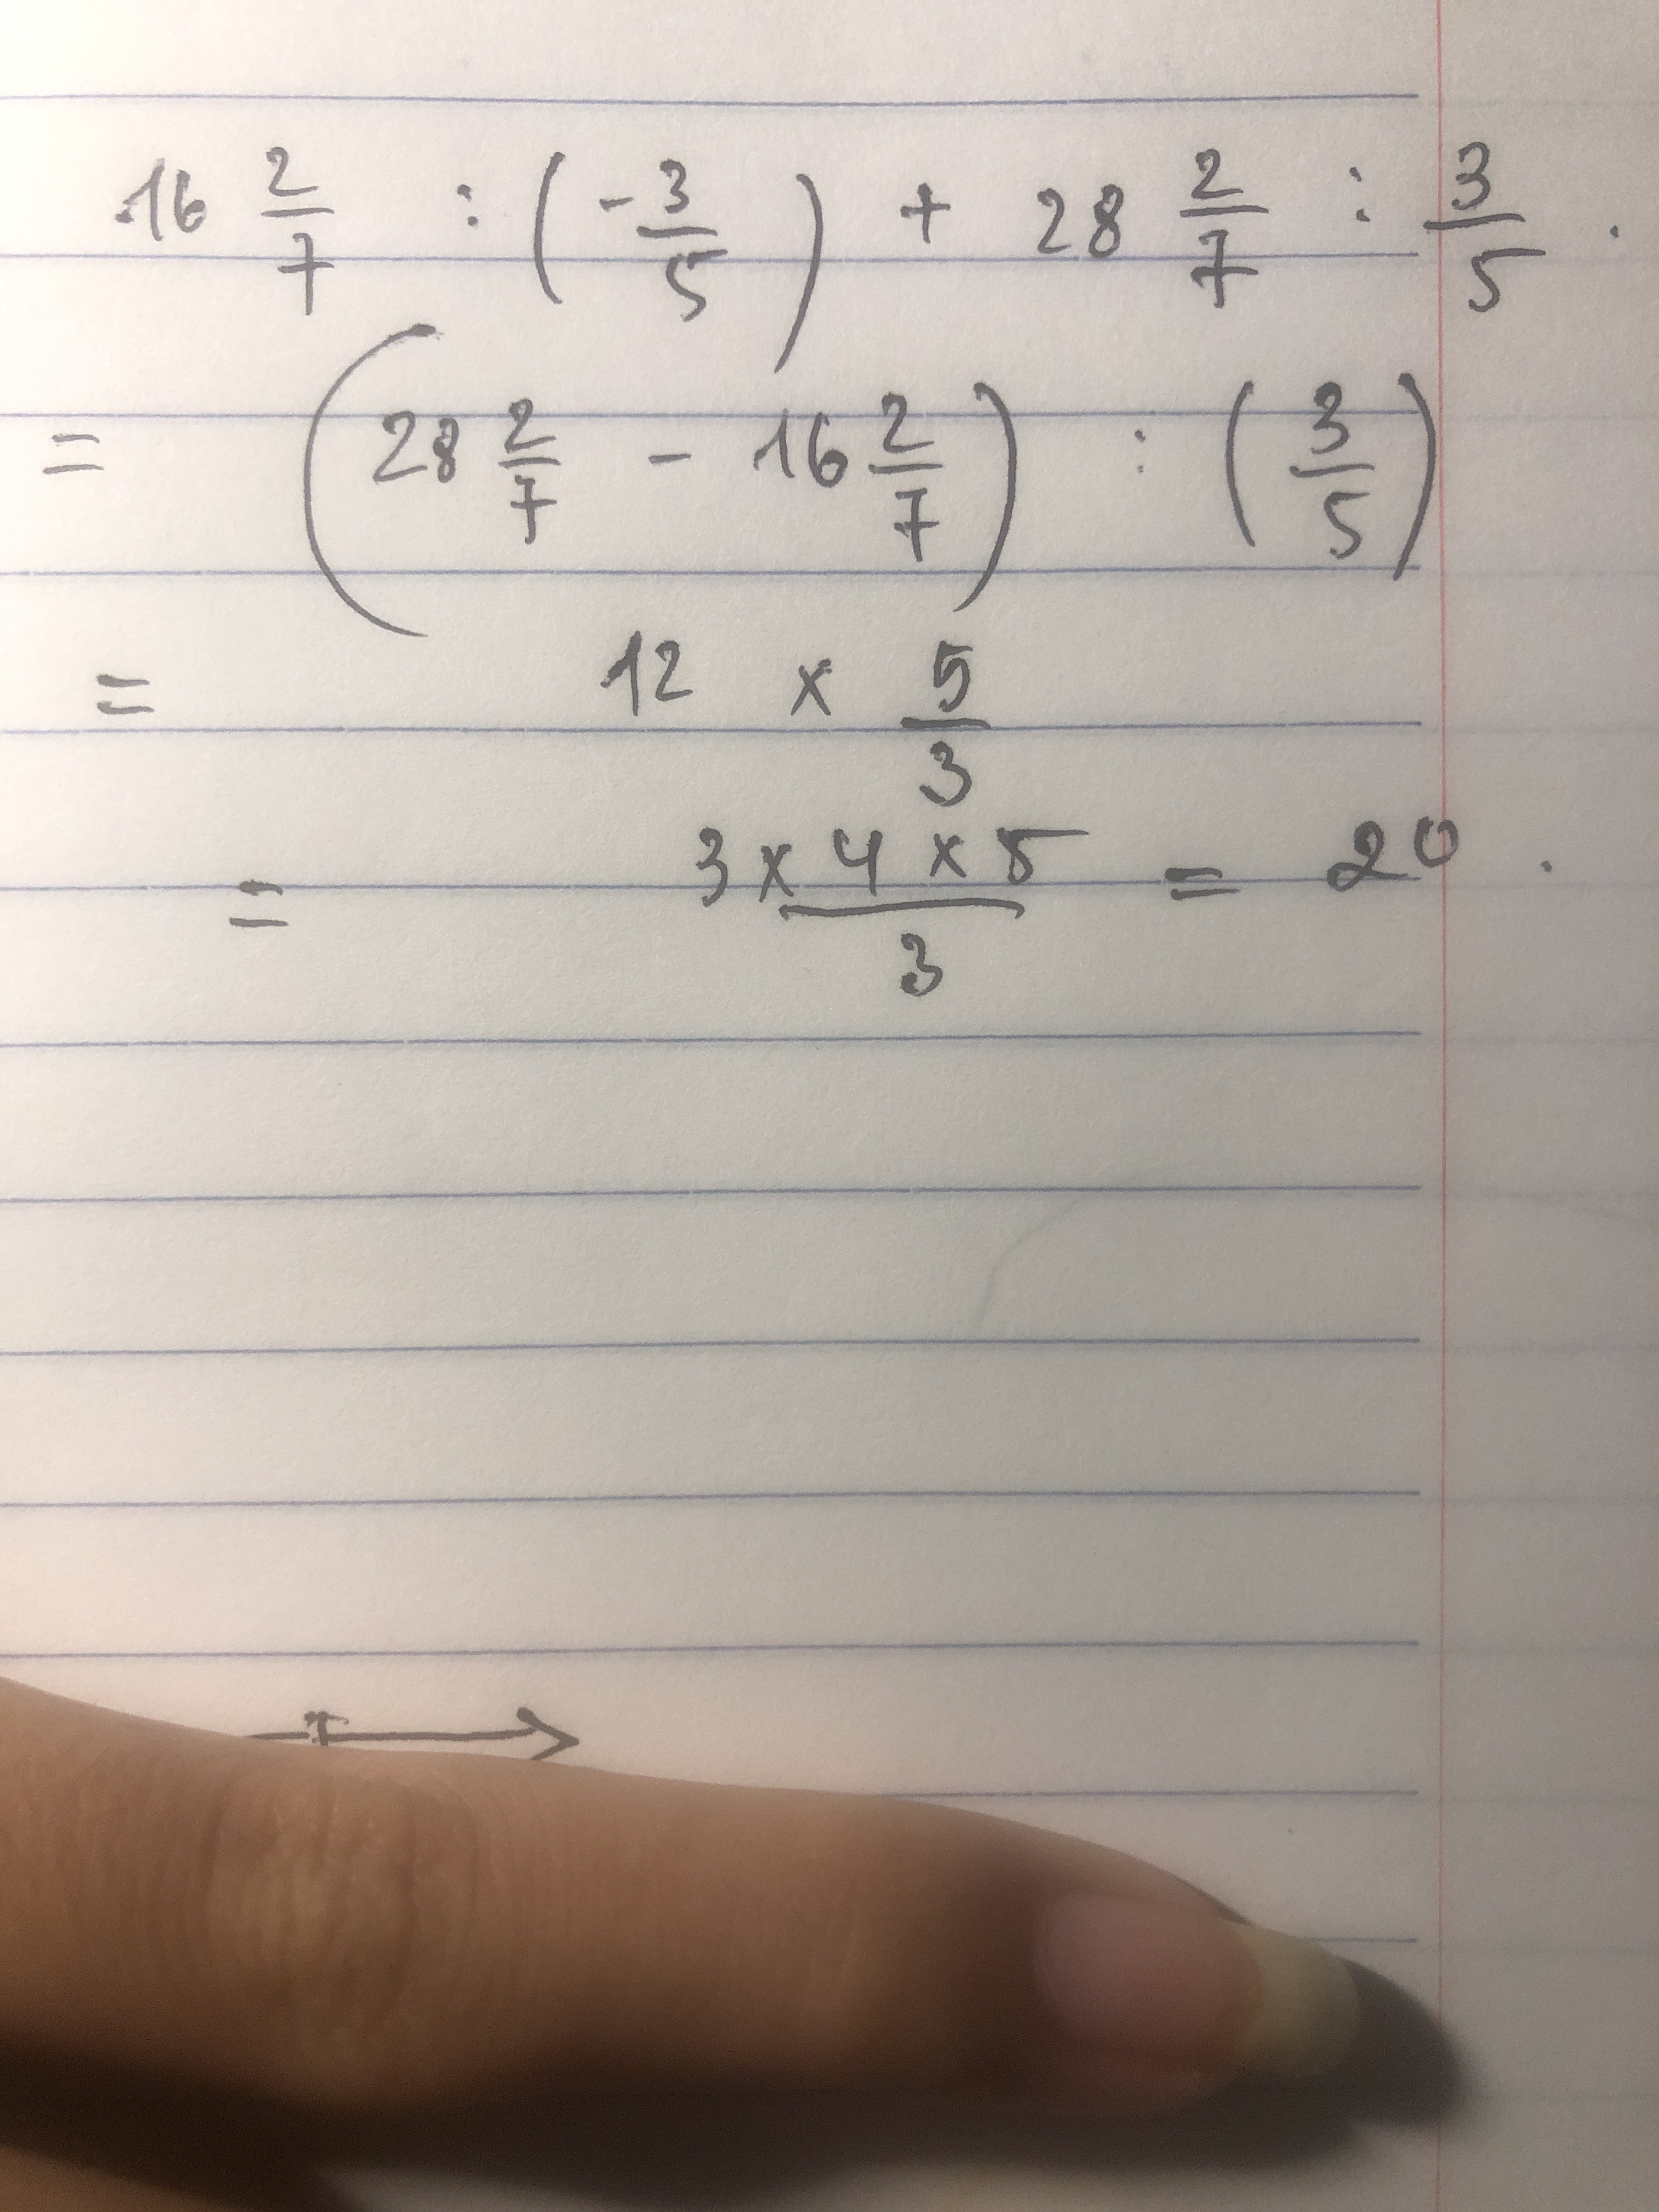 16 2/7 : (-3/5) + 28 2/7 : 3/5 .
= (28 2/7 - 16 2/7) : (3/5)
= 12 x 5/3
= 3 x 4 x 5 / 3 = 20 .